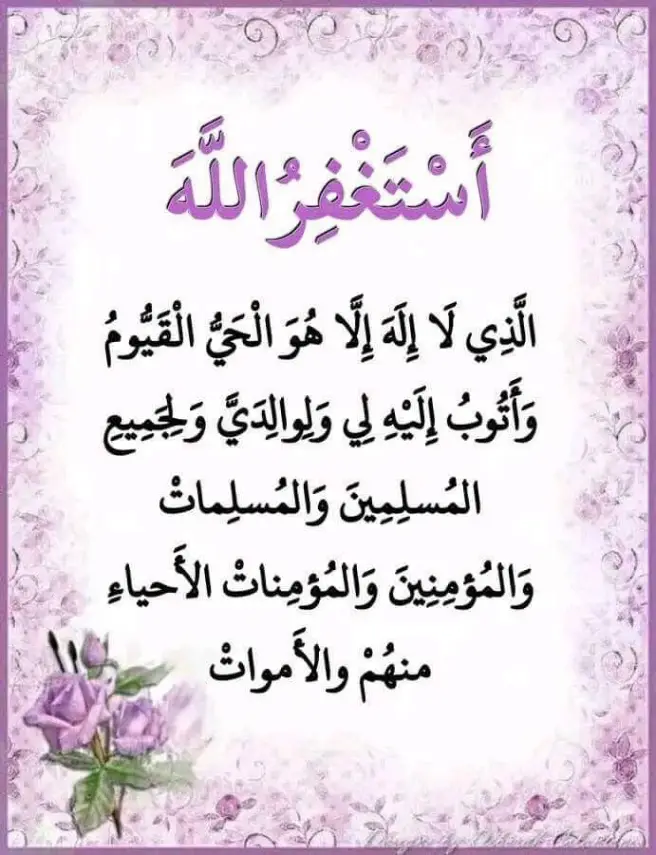 أَسْتَغْفِرُ اللَّهَ
الَّذِي لَا إِلَهَ إِلَّا هُوَ الْحَيُّ الْقَيُّومُ
وَأَتُوبُ إِلَيْهِ لِي وَلِوالِدَيَّ وَلِجَمِيعِ
المُسلِمِينَ وَالمُسلِماتْ
وَالمُؤمِنِينَ وَالمُؤمِناتْ الأَحياءِ
منهُمْ والأَمواتْ